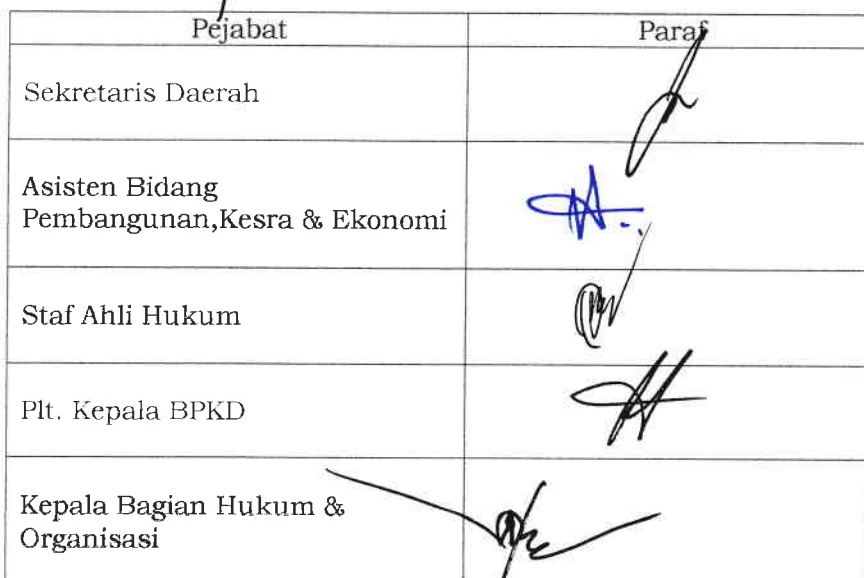 Pejabat Paraf
Sekretaris Daerah
Asisten Bidang
Pembangunan,Kesra & Ekonomi
Staf Ahli Hukum
Plt. Kepala BPKD
Kepala Bagian Hukum &
Organisasi